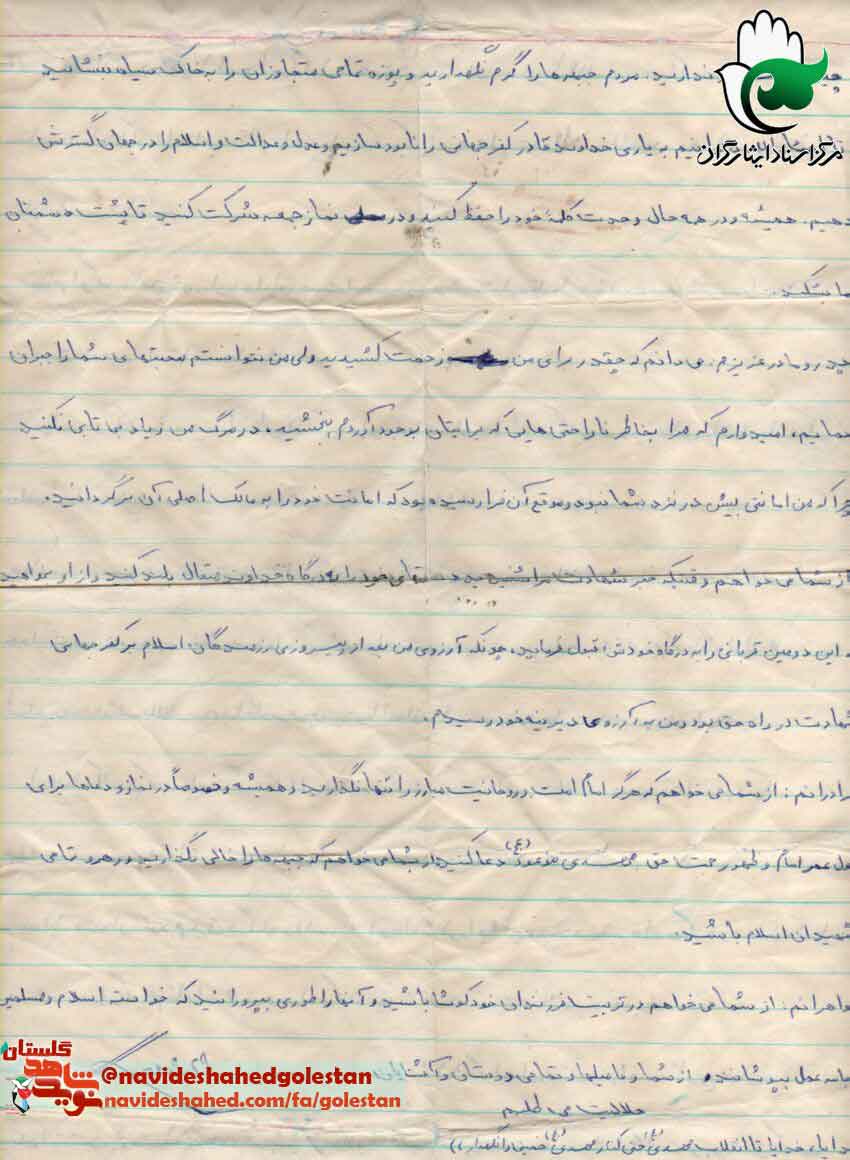 ندارید. مردم جبهه ها را گرم نگهدارید و پوزه تمامی متجاوزان را به خاک سیاه بنشانید
به یاری خداوند قادر کفر جهانی را نابود سازیم و عدل و عدالت و اسلام را در جهان گسترش
دهیم. همیشه و در همه حال وحدت کلمه خود را حفظ کنید و در نماز جمعه شرکت کنید تا پشت دشمنان
ما بشکند.
پدر و مادر عزیزم: می دانم که چقدر برای من زحمت کشیدید ولی من نتوانستم محبتهای شما را جبران
نمایم، امیدوارم که مرا بخاطر ناراحتی هایی که برایتان بوجود آوردم ببخشید، در مرگ من زیاد بی تابی نکنید
چرا که من امانتی بیش در نزد شما نبودم و موقع آن فرا رسیده بود که امانت خود را به مالک اصلی آن برگردانید.
از شما می خواهم وقتیکه خبر شهادت مرا شنیدید دستهای خود را به درگاه خداوند متعال بلند کنید و از او بخواهید
این دومین قربانی را به درگاه خودش قبول فرماید، چونکه آرزوی من بعد از پیروزی رزمندگان اسلام بر کفر جهانی
شهادت در راه حق بود و من به آرزوی دیرینه خود رسیدم.
برادرانم: از شما می خواهم که هرگز امام امت و روحانیت مبارز را تنها نگذارید و همیشه و خصوصاً در نماز و دعاها برای
طول عمر امام و ظهور حجت حق مهدی موعود (عج) دعا کنید از شما می خواهم که جبهه ها را خالی نگذارید و رهرو تمامی
شهیدان اسلام باشید.
خواهرانم: از شما می خواهم در تربیت فرزندان خود کوشا باشید و آنها را طوری بپرورانید که خواسته اسلام و مسلمین
جامه عمل بپوشانند. از شما و فامیلها و تمامی دوستان و آشنایان
حلالیت می طلبم
خدایا، خدایا تا انقلاب مهدی (عج) حتی کنار مهدی (عج) خمینی را نگهدار))
مرکز اسناد ایثارگران
گلستان
نوید شاهد
@navideshahedgolestan
navideshahed.com/fa/golestan